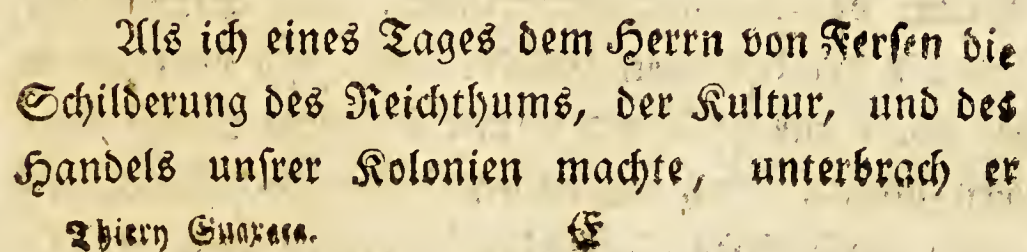 Als ich eines Tages dem Herrn von Fersen die
Schilderung des Reichthums, der Kultur, und des
Handels unsrer Kolonien machte, unterbrach er
Thiery Guaxaca. E